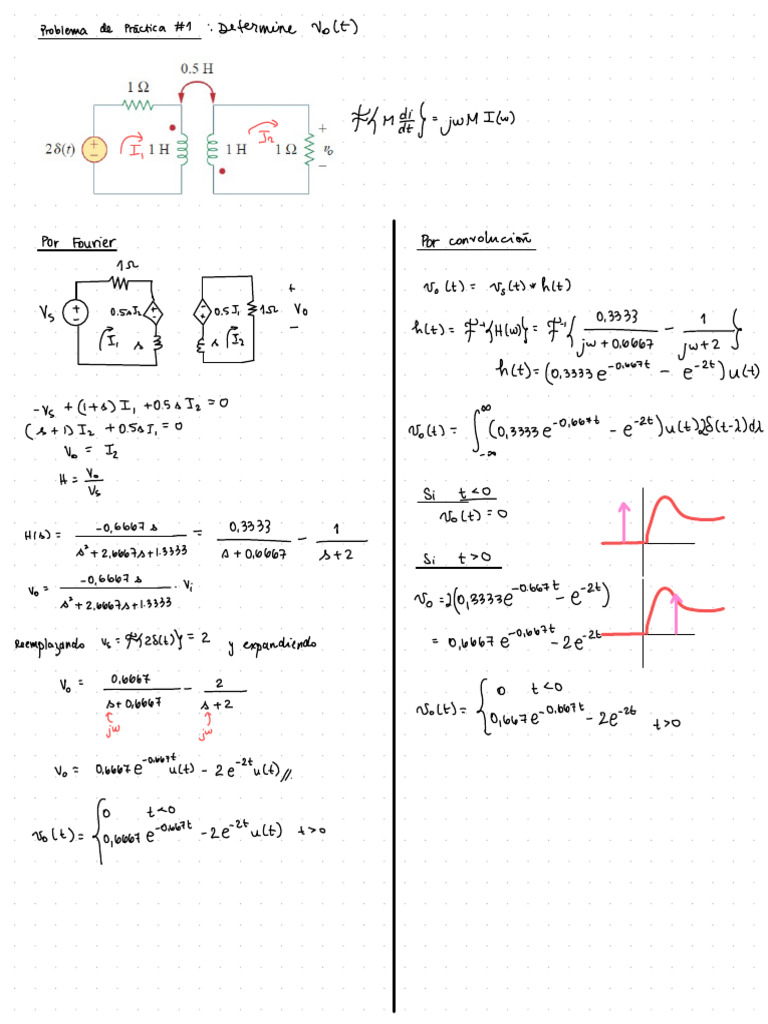 Problema de Práctica #1 : Determine v₀(t)
0.5 H
1 Ω
2δ(t)
+
−
I₁
1 H
1 H
I₂
1 Ω
+
v₀
−
F{M di/dt} = jωM I(ω)
Por Fourier
1Ω
Vs
+
−
0.5sI₂
−
+
I₁
s
+
−
0.5I₁
s
I₂
1Ω
+
V₀
−
-Vs + (1+s) I₁ + 0.5s I₂ = 0
(s+1) I₂ + 0.5s I₁ = 0
V₀ = I₂
H = V₀/Vs
H(s) = -0,6667 s / (s² + 2,6667s + 1.3333) = 0,3333 / (s + 0,6667) − 1 / (s+2)
V₀ = -0,6667 s / (s² + 2,6667s + 1.3333) · Vi
Reemplazando Vs = F{2δ(t)} = 2 y expandiendo
V₀ = 0,6667 / (s + 0,6667) − 2 / (s+2)
jω
jω
V₀ = 0,6667e^(-0.667t) u(t) − 2e^(-2t) u(t)//
v₀(t) = { 0 t<0
0,6667 e^(-0.667t) − 2e^(-2t) u(t) t>0
Por convolución
v₀(t) = vs(t) * h(t)
h(t) = F⁻¹{H(ω)} = F⁻¹{ 0,3333 / (jω + 0,6667) − 1 / (jω + 2) }
h(t) = (0,3333e^(-0.667t) − e^(-2t)) u(t)
v₀(t) = ∫_(-∞)^(∞) (0,3333e^(-0,667t) − e^(-2t)) u(t) 2δ(t-λ)dλ
Si t<0
v₀(t) = 0
Si t>0
v₀ = 2(0,3333e^(-0.667t) − e^(-2t))
= 0,6667e^(-0,667t) − 2e^(-2t)
v₀(t) = { 0 t<0
0,667e^(-0.667t) − 2e^(-2t) t>0